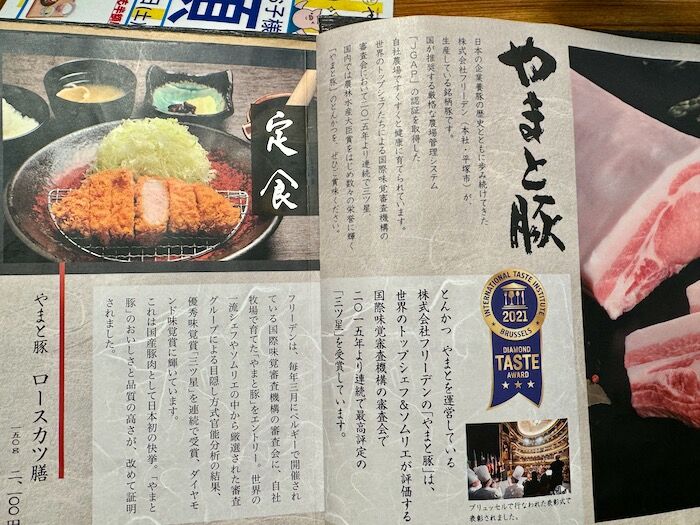 お子様
土
額
やまと豚
日本の企業養豚の歴史とともに歩み続けてきた
株式会社フリーデン（本社・平塚市）が、
生産している銘柄豚です。
国が推奨する厳格な農場管理システム
「JGAP」の認証を取得した
自社農場ですくすくと健康に育てられています。
世界のトップシェフたちによる国際味覚審査機構の
審査会において二〇一五年より連続で三ツ星
国内では農林水産大臣賞をはじめ数々の栄誉に輝く
「やまと豚」のとんかつを、ぜひご賞味ください。
とんかつ やまとを運営している
株式会社フリーデンの「やまと豚」は、
世界のトップシェフ&ソムリエが評価する
国際味覚審査機構の審査会で
二〇一五年より連続で最高評定の
「三ツ星」を受賞しています。
INTERNATIONAL TASTE INSTITUTE
2021
BRUSSELS
DIAMOND
TASTE
AWARD
ブリュッセルで行なわれた表彰式で
表彰されました。
定食
フリーデンは、毎年三月にベルギーで開催され
ている国際味覚審査機構の審査会に、自社
牧場で育てた「やまと豚」をエントリー。世界の
一流シェフやソムリエの中から厳選された審査
グループによる目隠し方式官能分析の結果、
優秀味覚賞「三ツ星」を連続で受賞、ダイヤモ
ンド味覚賞に輝いています。
これは国産豚肉として日本初の快挙。「やまと
豚」のおいしさと品質の高さが、改めて証明
されました。
やまと豚 ロースカツ膳
一五〇g 二、一〇〇円